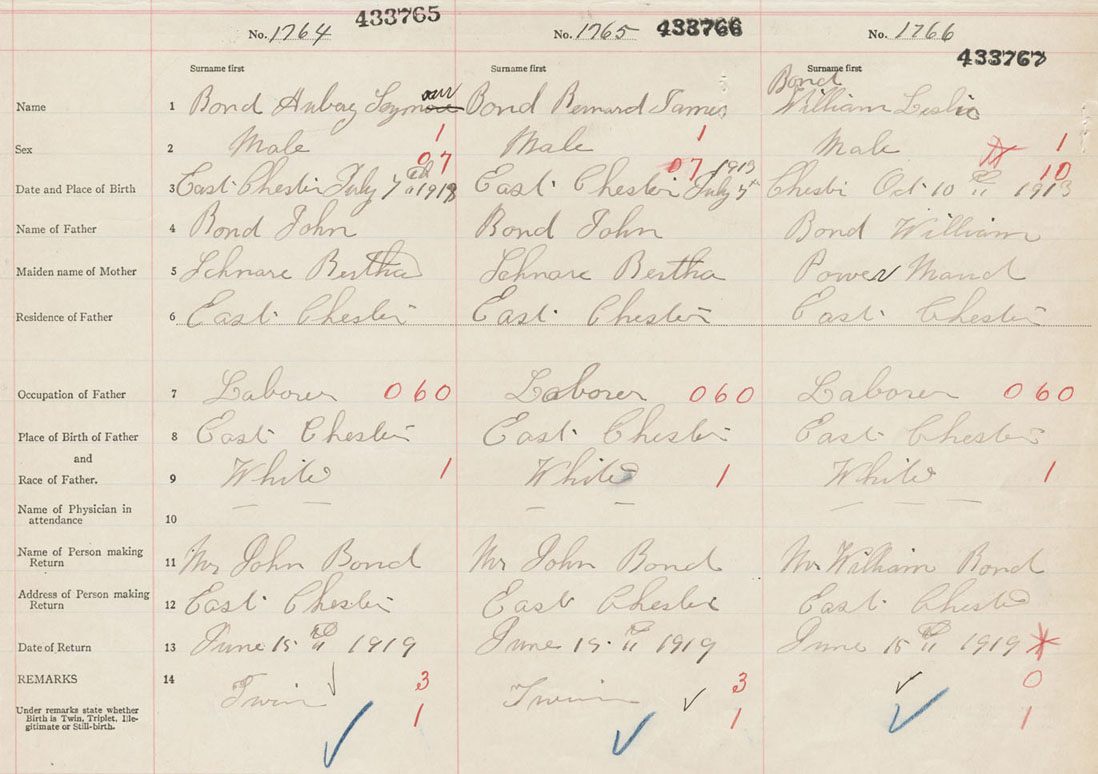 No. 1764 433765 No. 1765 433766 No. 1766 433767
Surname first Surname first Surname first
Name 1 Bond Aubrey Seymour Bond Bernard James Bond William Leslie
Sex 2 Male 1 Male 1 Male 1
07 07 1913 10
Date and Place of Birth 3 East Chester July 7th 1918 East Chester July 7th Chester Oct 10th 1913
Name of Father 4 Bond John Bond John Bond William
Maiden name of Mother 5 Schnare Bertha Schnare Bertha Power Maud
Residence of Father 6 East Chester East Chester East Chester
Occupation of Father 7 Laborer 060 Laborer 060 Laborer 060
Place of Birth of Father 8 East Chester East Chester East Chester
and
Race of Father. 9 White 1 White 1 White 1
Name of Physician in
attendance 10
Name of Person making
Return 11 Mr John Bond Mr John Bond Mr William Bond
Address of Person making
Return 12 East Chester East Chester East Chester
Date of Return 13 June 15 1919 June 15 1919 June 15 1919
REMARKS 14 Twin 3 Twin 3 0
Under remarks state whether
Birth is Twin, Triplet, Ille-
gitimate or Still-birth. 1 1 1